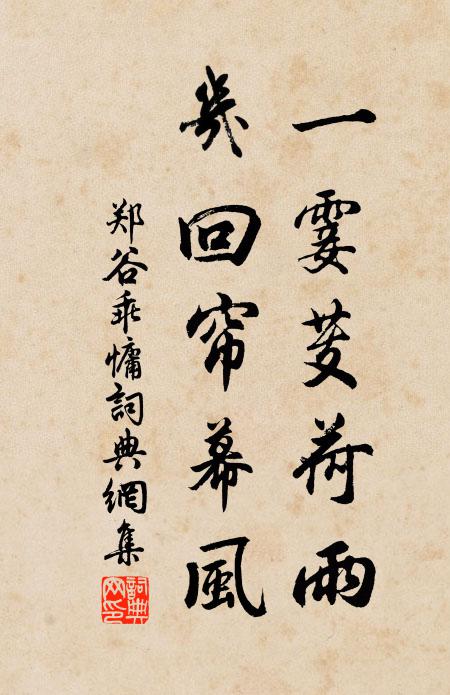 一霎芰荷雨
幾回帘幕風
郑谷乖慵詞典網集
詞典
网印